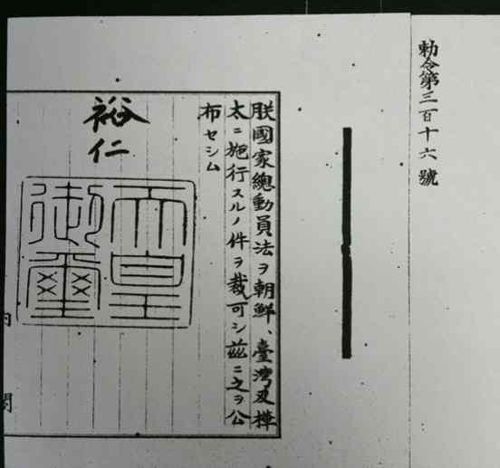 勅令第三百十六號
朕國家總動員法ヲ朝鮮、臺灣及樺
太ニ施行スルノ件ヲ裁可シ茲ニ之ヲ公
布セシム
裕仁
天皇
御璽
内閣